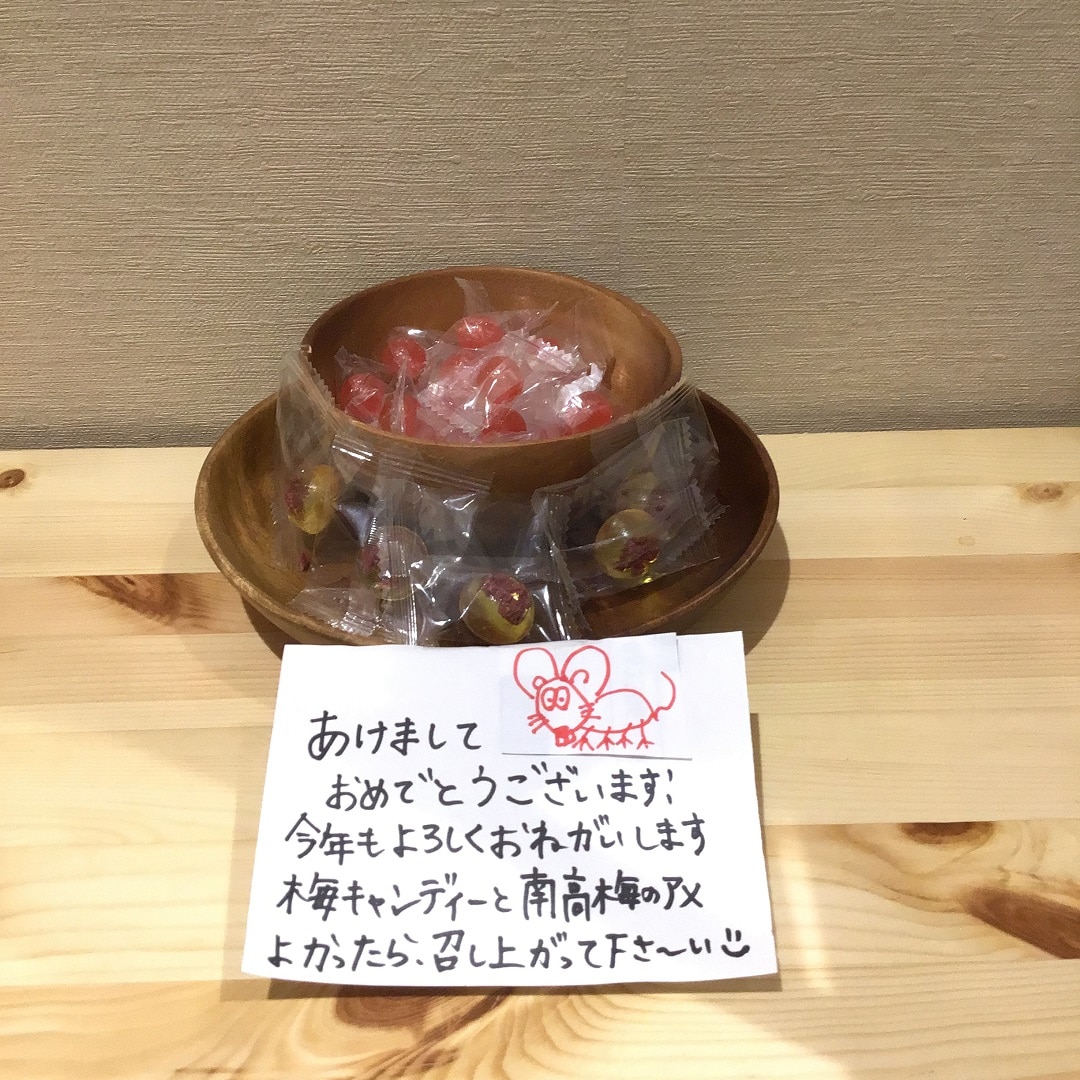 あけまして
おめでとうございます!
今年もよろしくおねがいします
梅キャンディーと南高梅のアメ
よかったら、召し上がって下さ〜い